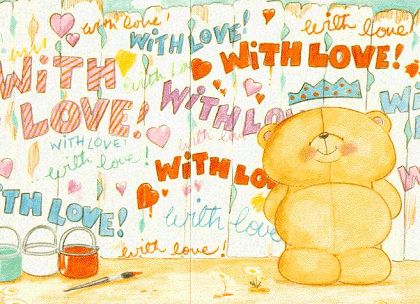 with love!
WITH LOVE!
with love!
WITH LOVE!
WiTH LOVE!
with lo
WITH
WITH
LOVE!
with lo
WITH LOVE!
with love!
WITH LO
WITH LOVE!
with love
with love!